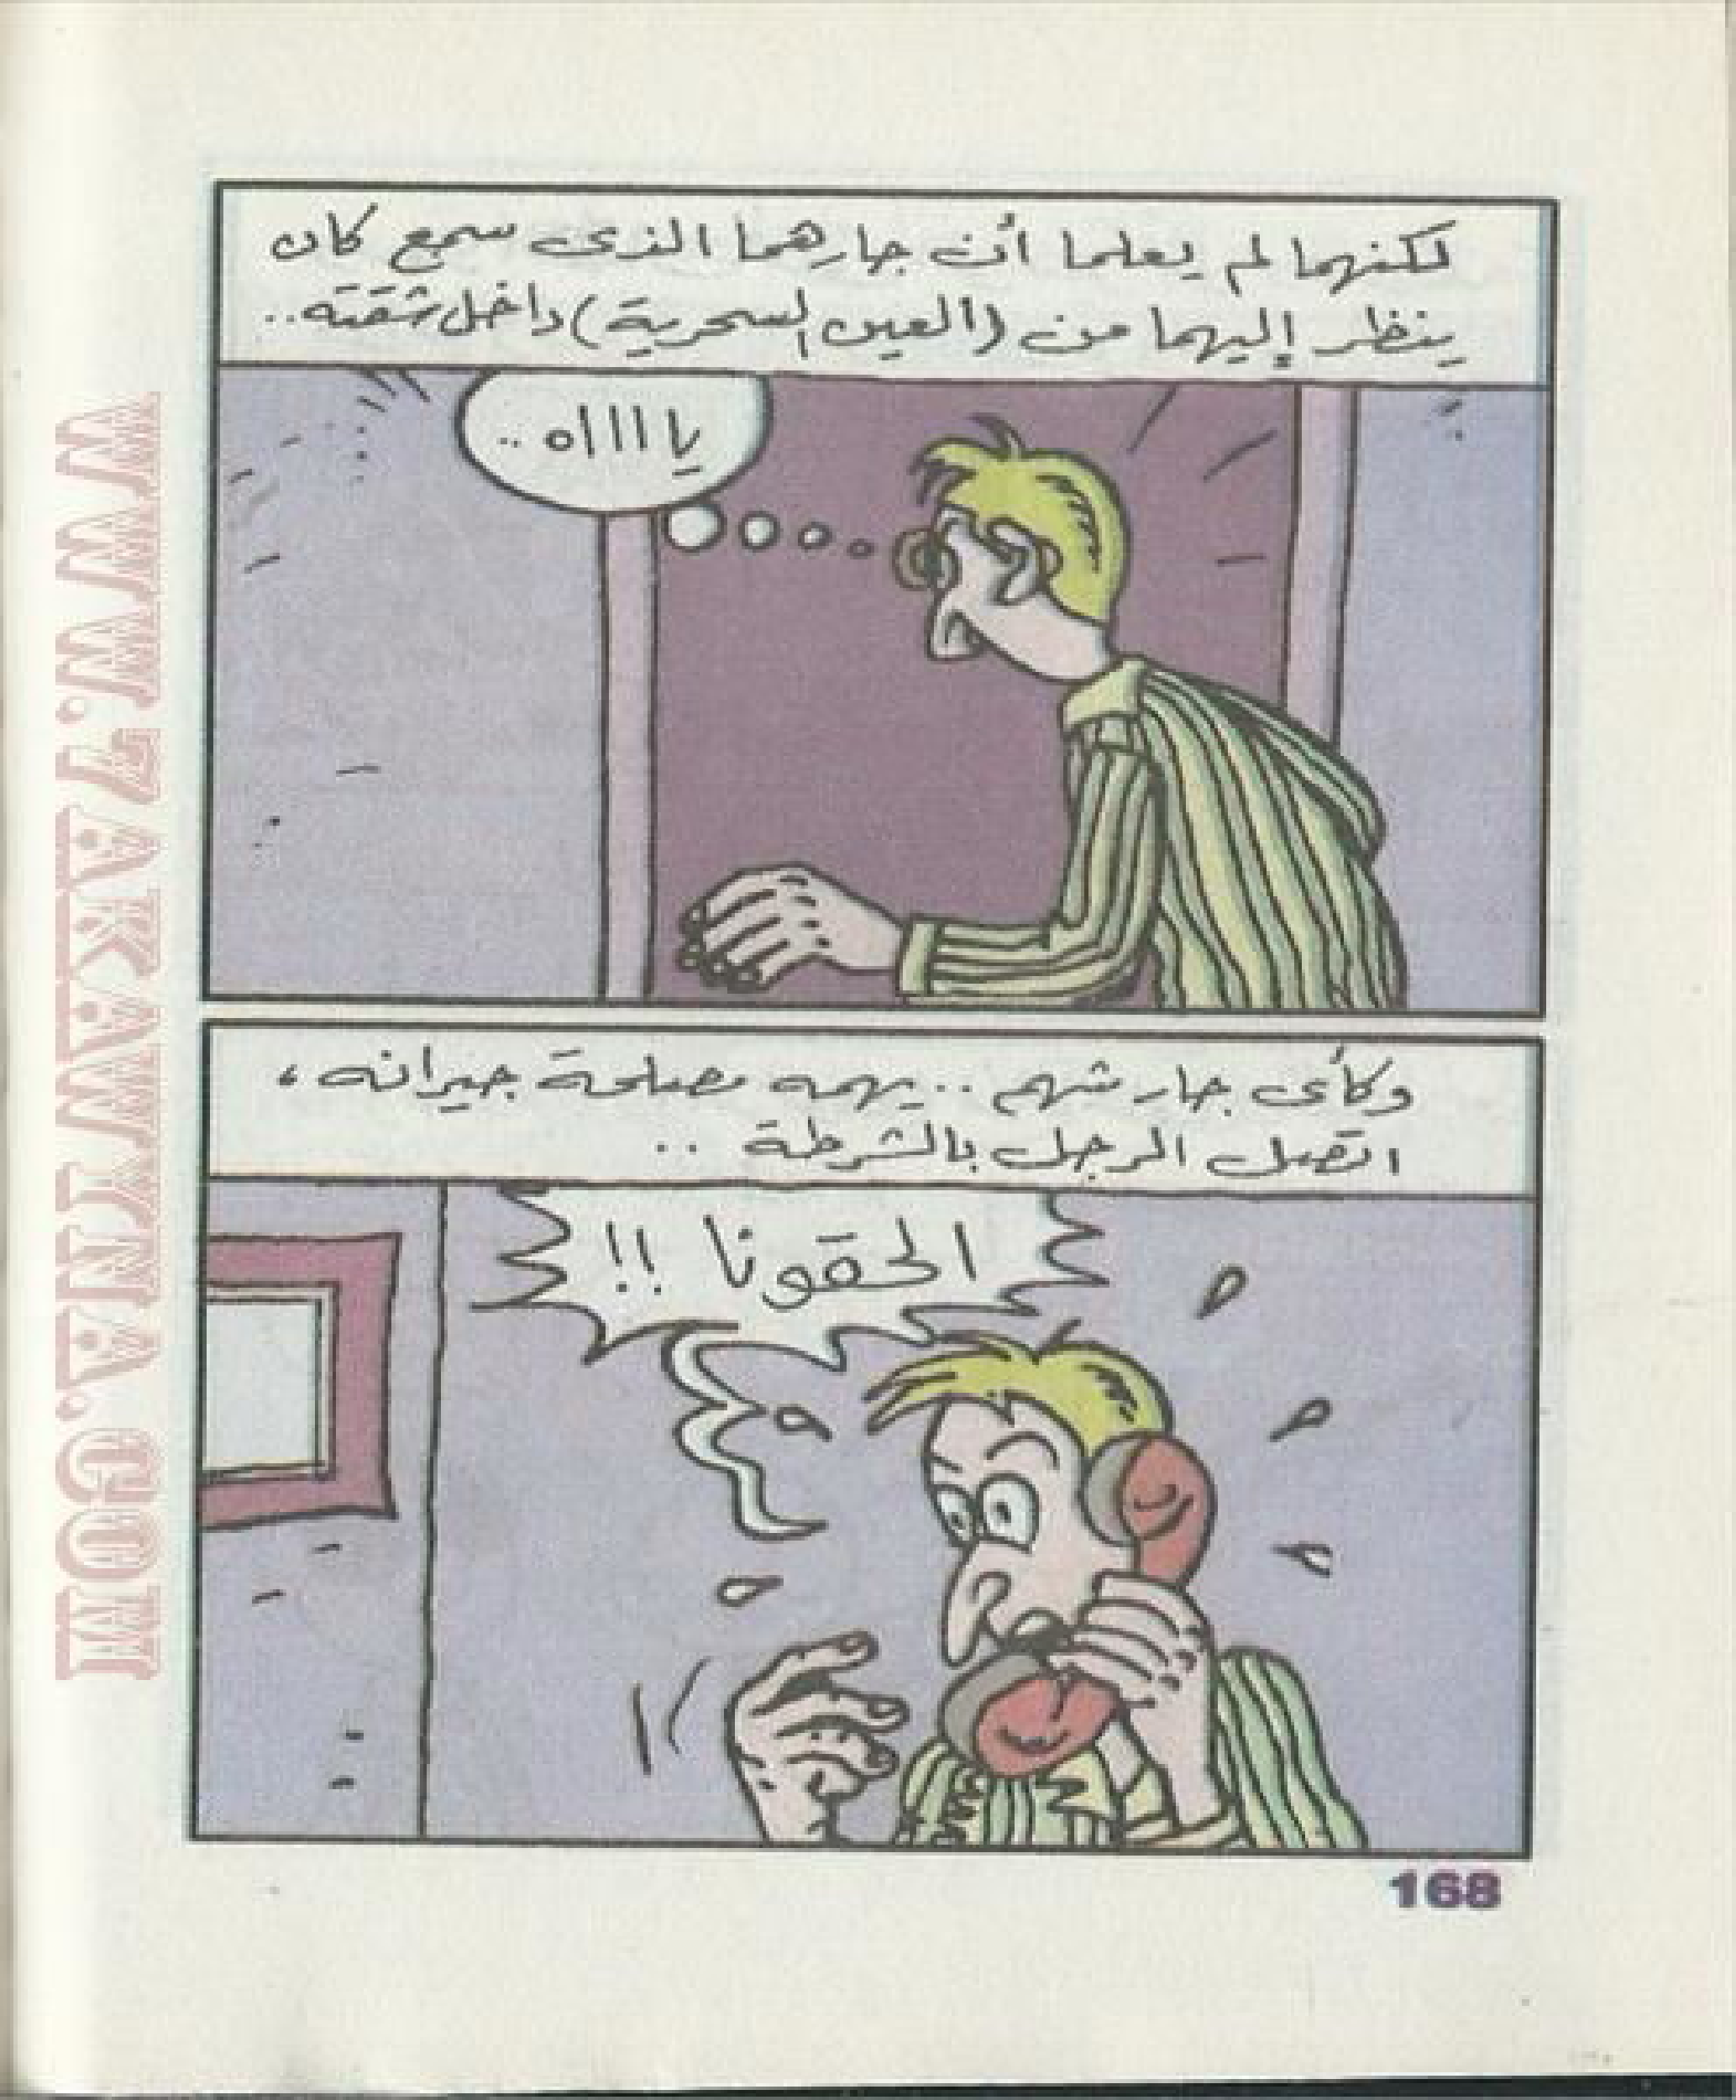 لكنهما لم يعلما أن جارهما الذى سمع كان
ينظر إليهما من (العين السحرية) داخل شقته..
يا ا ا ا ه ..
وكأى جار شهم .. يهمه مصلحة جيرانه ،
اتصل الرجل بالشرطة ..
الحقونا !!
168
WWW.7AKAWTNA.COM